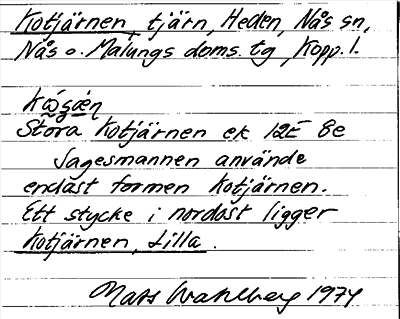 Kotjärnen, tjärn, Heden, Nås sn,
Nås o. Malungs doms. tg, Kopp. l.
Stora Kotjärnen ek 12E 8e
Sagesmannen använde
endast formen Kotjärnen.
Ett stycke i nordost ligger
Kotjärnen, Lilla.
Mats Wahlberg 1974